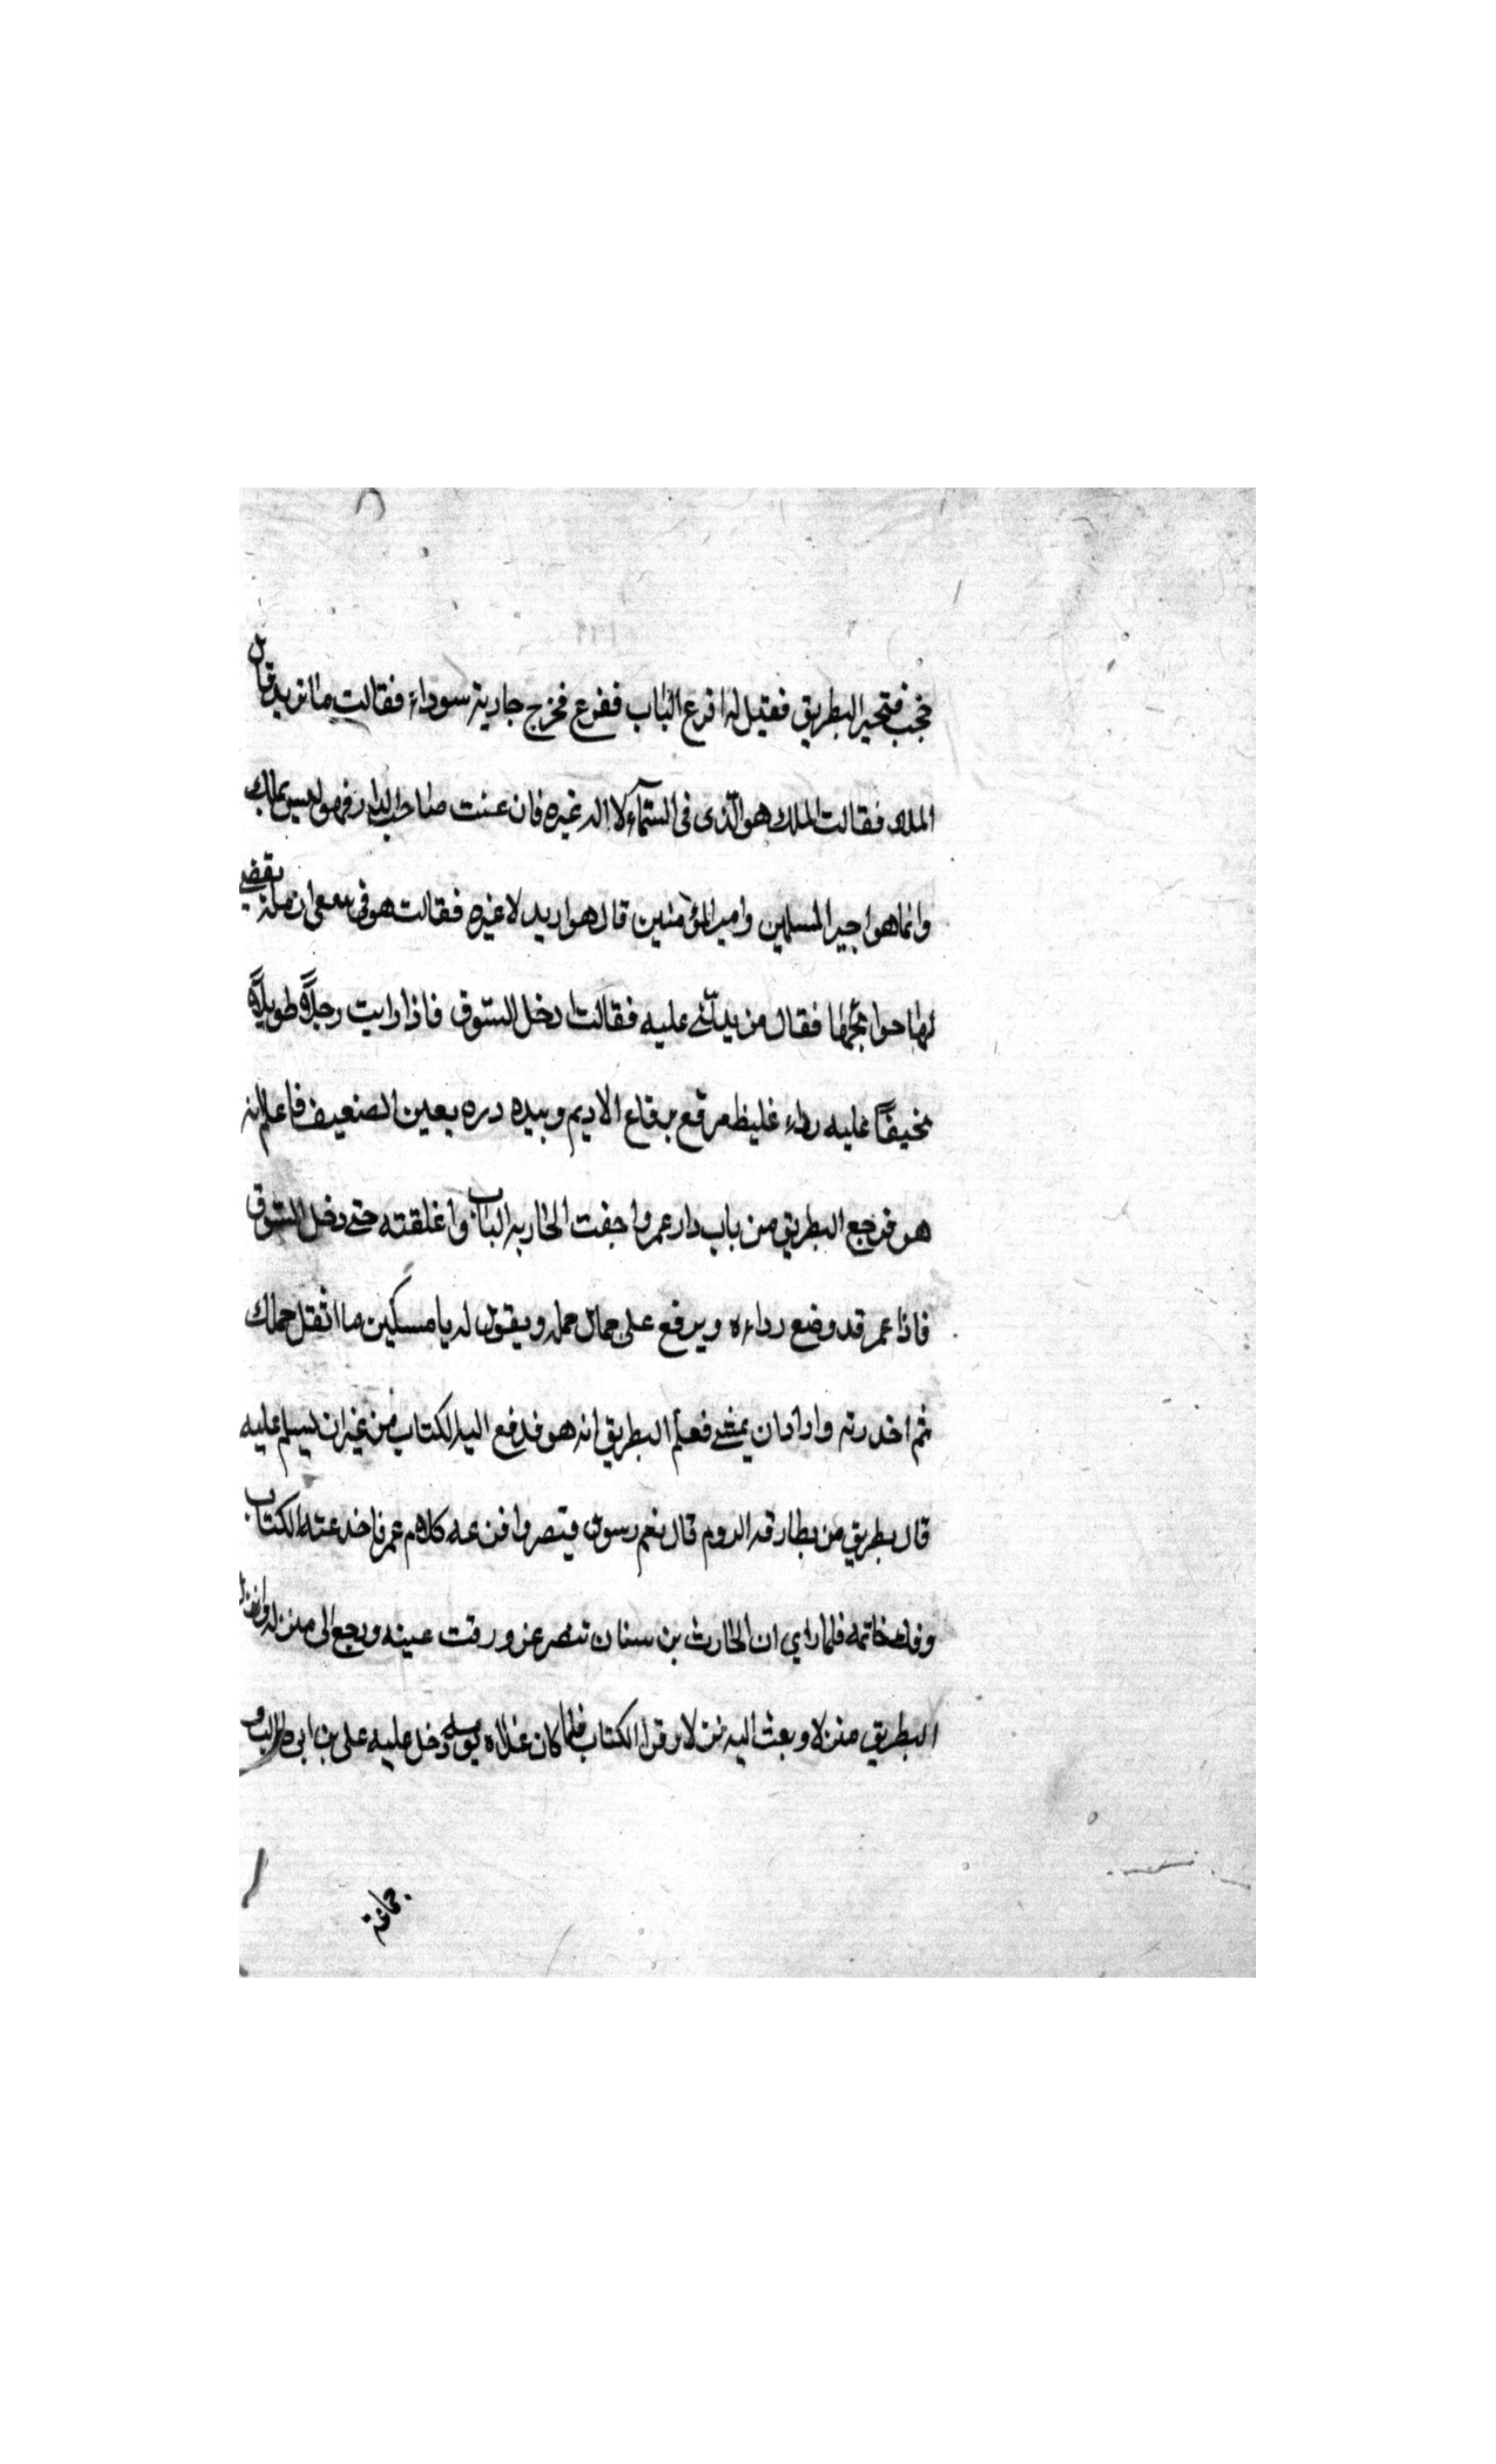 فخجب فتحير البطريق فقيل له اقرع الباب فقرع فخرج جارية سوداء فقالت ما تريد قال
الملك فقالت الملك هو الذي في السمآء لا اله غيره فان عنيت صاحب الدار فهو ليس بملك
وانما هو اجير المسلمين وامير المؤمنين قال هو اريد لا غيره فقالت هو في يقضي
لها حوائجها فقال من يدلّني عليه فقالت ادخل السّوق فاذا رايت رجلاً طويلاً
نحيفاً عليه رداء غليظ مرقع برقاع الاديم وبيده دره يعين الضعيف فاعلم انه
هو فرجع البطريق من باب دار عمر واجفت الجاريه الباب واغلقته حتى دخل السّوق
فاذا عمر قد وضع رداءه ويرفع على حمال حمله ويقول له يا مسكين ما اثقل حملك
ثم اخذ درته وارادان يمشي فعلم البطريق انه هو فدفع اليه الكتاب من غير ان يسلم عليه
قال بطريق من بطارقه الروم قال نعم رسول قيصر وافزعه كلام عمر فاخذ عنه الكتاب
وفك خاتمه فلما راي ان الحارث بن سنان تنصر عزورقت عينه ورجع الى منزله وانزل
البطريق منزلا وبعث اليه نزلا وقرا الكتاب فلما كان غداة دخل عليه على بن ابي طالب و